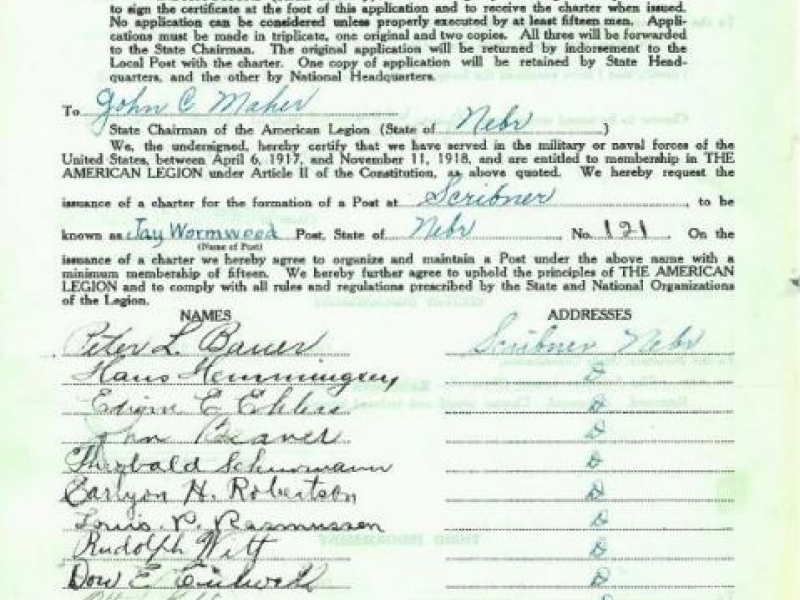 to sign the certificate at the foot of this application and to receive the charter when issued.
No application can be considered unless properly executed by at least fifteen men. Appli-
cations must be made in triplicate, one original and two copies. All three will be forwarded
to the State Chairman. The original application will be returned by indorsement to the
Local Post with the charter. One copy of application will be retained by State Head-
quarters, and the other by National Headquarters.
To John C Maher
State Chairman of the American Legion (State of Nebr)
We, the undersigned, hereby certify that we have served in the military or naval forces of the
United States, between April 6, 1917, and November 11, 1918, and are entitled to membership in THE
AMERICAN LEGION under Article II of the Constitution, as above quoted. We hereby request the
issuance of a charter for the formation of a Post at Scribner, to be
known as Jay Wormwood Post, State of Nebr No. 121. On the
(Name of Post)
issuance of a charter we hereby agree to organize and maintain a Post under the above name with a
minimum membership of fifteen. We hereby further agree to uphold the principles of THE AMERICAN
LEGION and to comply with all rules and regulations prescribed by the State and National Organizations
of the Legion.
NAMES ADDRESSES
Peter L. Bauer Scribner Nebr
Hans Hemmingsen
E. Ehlers
Beaver
Theobald Schurmann
Earlyon H. Robertson
Louis. P. Rasmussen
Rudolph Witt
E.